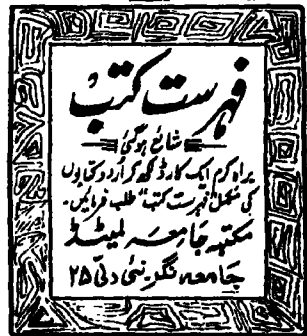 فہرست کتب
شائع ہوگئی
براہ کرم ایک کارڈ لکھ کر اُردو کتابوں
کی مکمل "فہرست کتب" طلب فرمائیں۔
مکتبہ جامعہ لمیٹڈ
جامعہ نگر۔ نئی دلی ۲۵